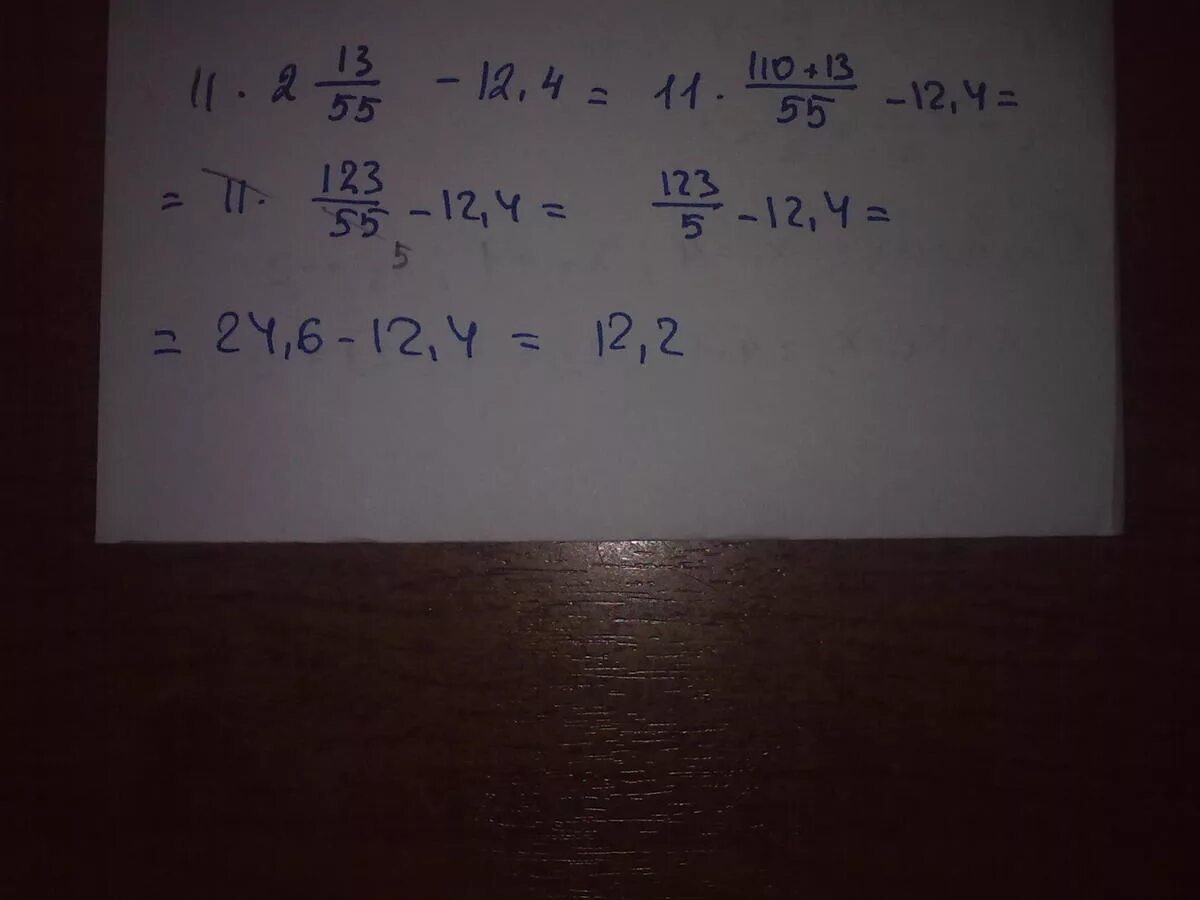 11 · 2 13/55 - 12,4 = 11 · 110+13/55 - 12,4 =
= 11 · 123/55 - 12,4 = 123/5 - 12,4 =
5
= 24,6 - 12,4 = 12,2